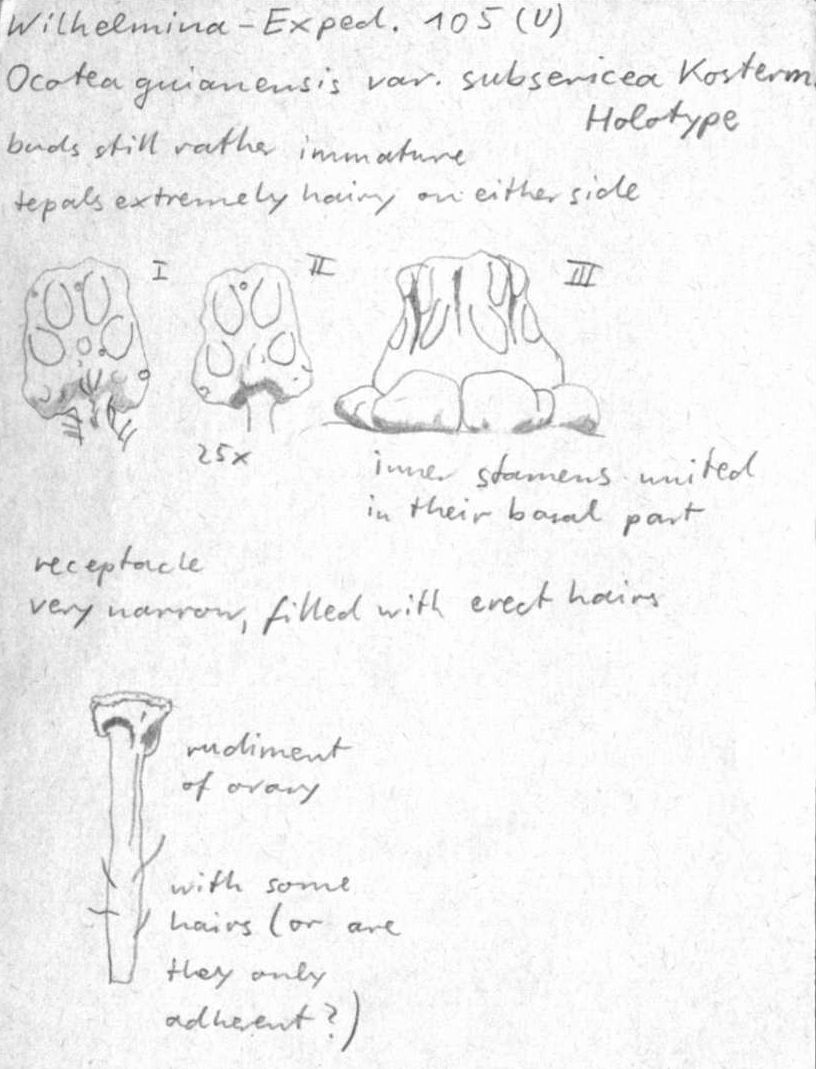 Wilhelmina-Exped. 105 (U)
Ocotea guianensis var. subsericea Kosterm.
Holotype
buds still rather immature
tepals extremely hairy on either side
I
II
III
25x
inner stamens united
in their basal part
receptacle
very narrow, filled with erect hairs
rudiment
of ovary
with some
hairs (or are
they only
adherent?)